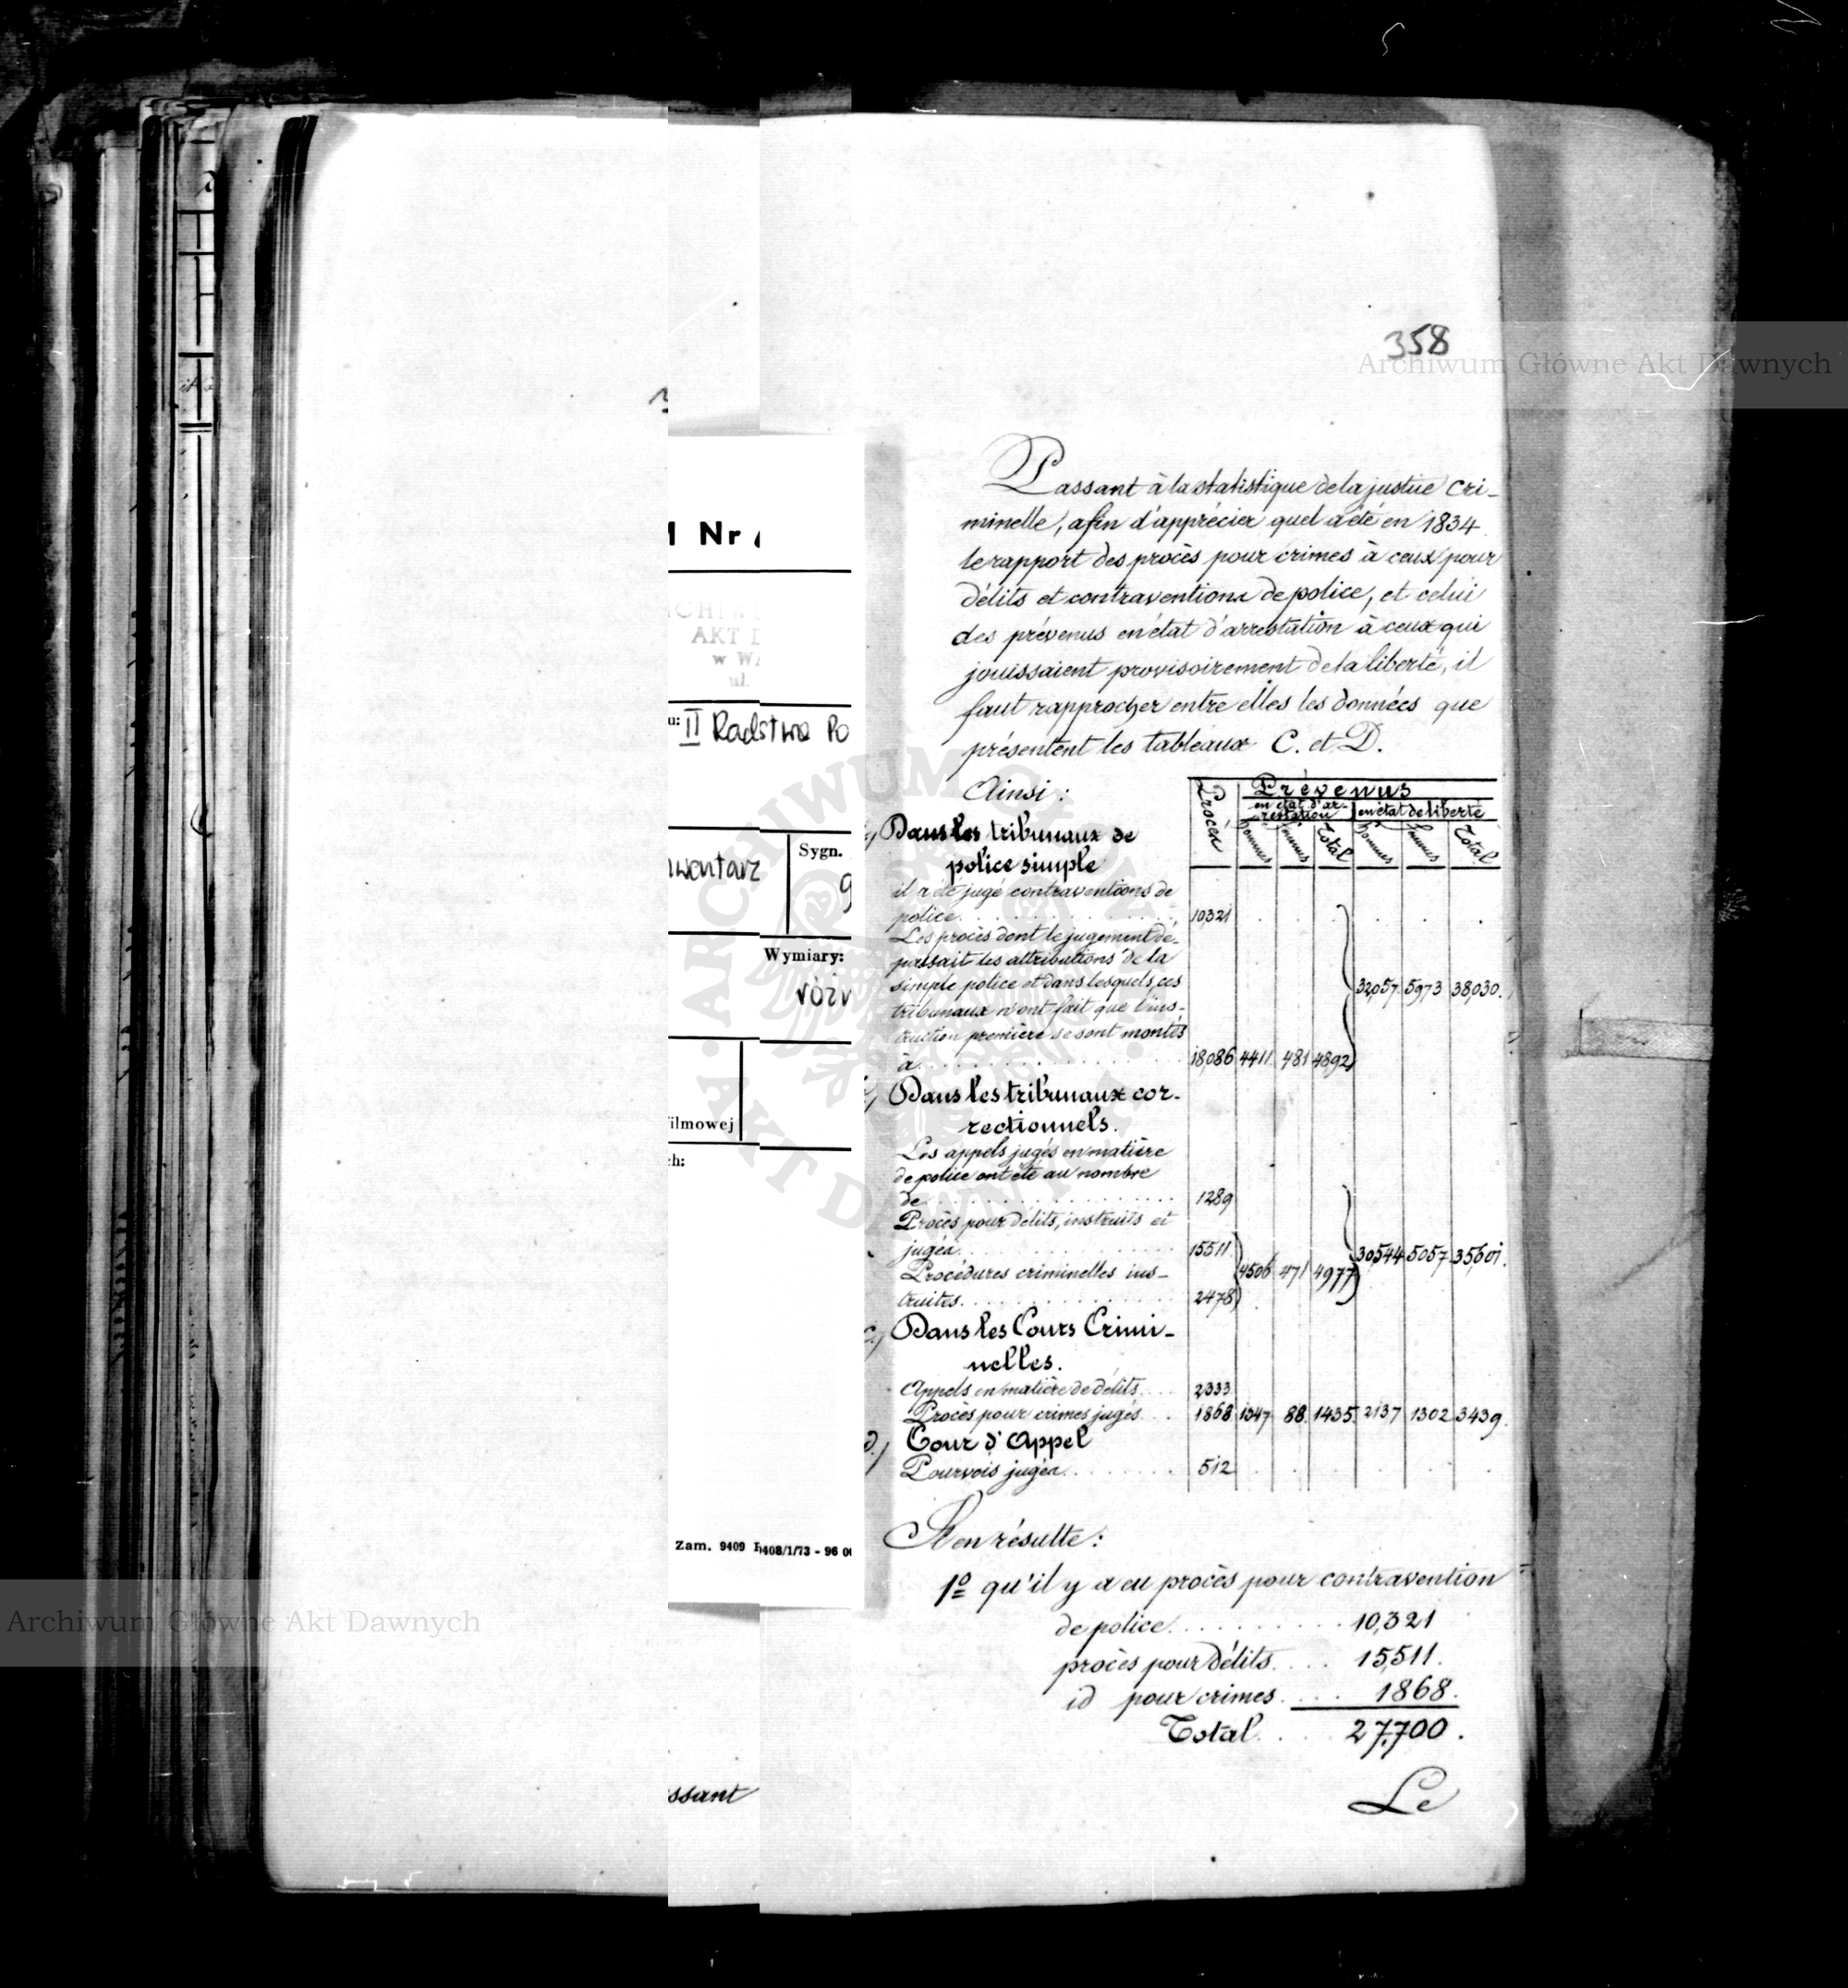 358
Archiwum Główne Akt Dawnych
Passant à la statistique de la justice cri-
minelle, afin d'apprécier quel a été en 1834
le rapport des procès pour crimes à ceux pour
délits et contraventions de police, et celui
des prévenus en état d'arrestation à ceux qui
jouissaient provisoirement de la liberté, il
faut rapprocher entre elles les données que
présentent les tableaux C. et D.
Ainsi:
Procès Prévenus
en état d'ar-
restation en état de liberté
hommes femmes Total hommes femmes Total
Dans les tribunaux de
police simple
il a été jugé contraventions de
police 10321
Les procès dont le jugement dé-
passait les attributions de la
simple police et dans lesquels, ces 32,057. 5973 38,030.
tribunaux n'ont fait que l'ins-
truction première se sont montés
à 18,086 4411. 481 4892
Dans les tribunaux cor-
rectionnels.
Les appels jugés en matière
de police ont été au nombre
de 1289
Procès pour délits, instruits et
jugés 15511. 30,544 5057 35,601.
Procédures criminelles ins- 4506 471 4977
truites 2478
c) Dans les Cours Crimi-
nelles.
Appels en matière de délits 2333
Procès pour crimes jugés 1868 1347 88. 1435. 2137 1302 3439.
d.) Cour d'Appel
Pourvois jugés 512
Il en résulte:
1º qu'il y a eu procès pour contravention
de police 10,321
procès pour délits 15,511.
id pour crimes 1868.
Total 27,700.
Le
Nr
AKT
II Radstwa Po
Sygn.
Wymiary:
ilmowej
ch:
Zam. 9409
408/1/73 - 96
ssant
Archiwum Główne Akt Dawnych
ARCHIWUM
AKT DAWNYCH